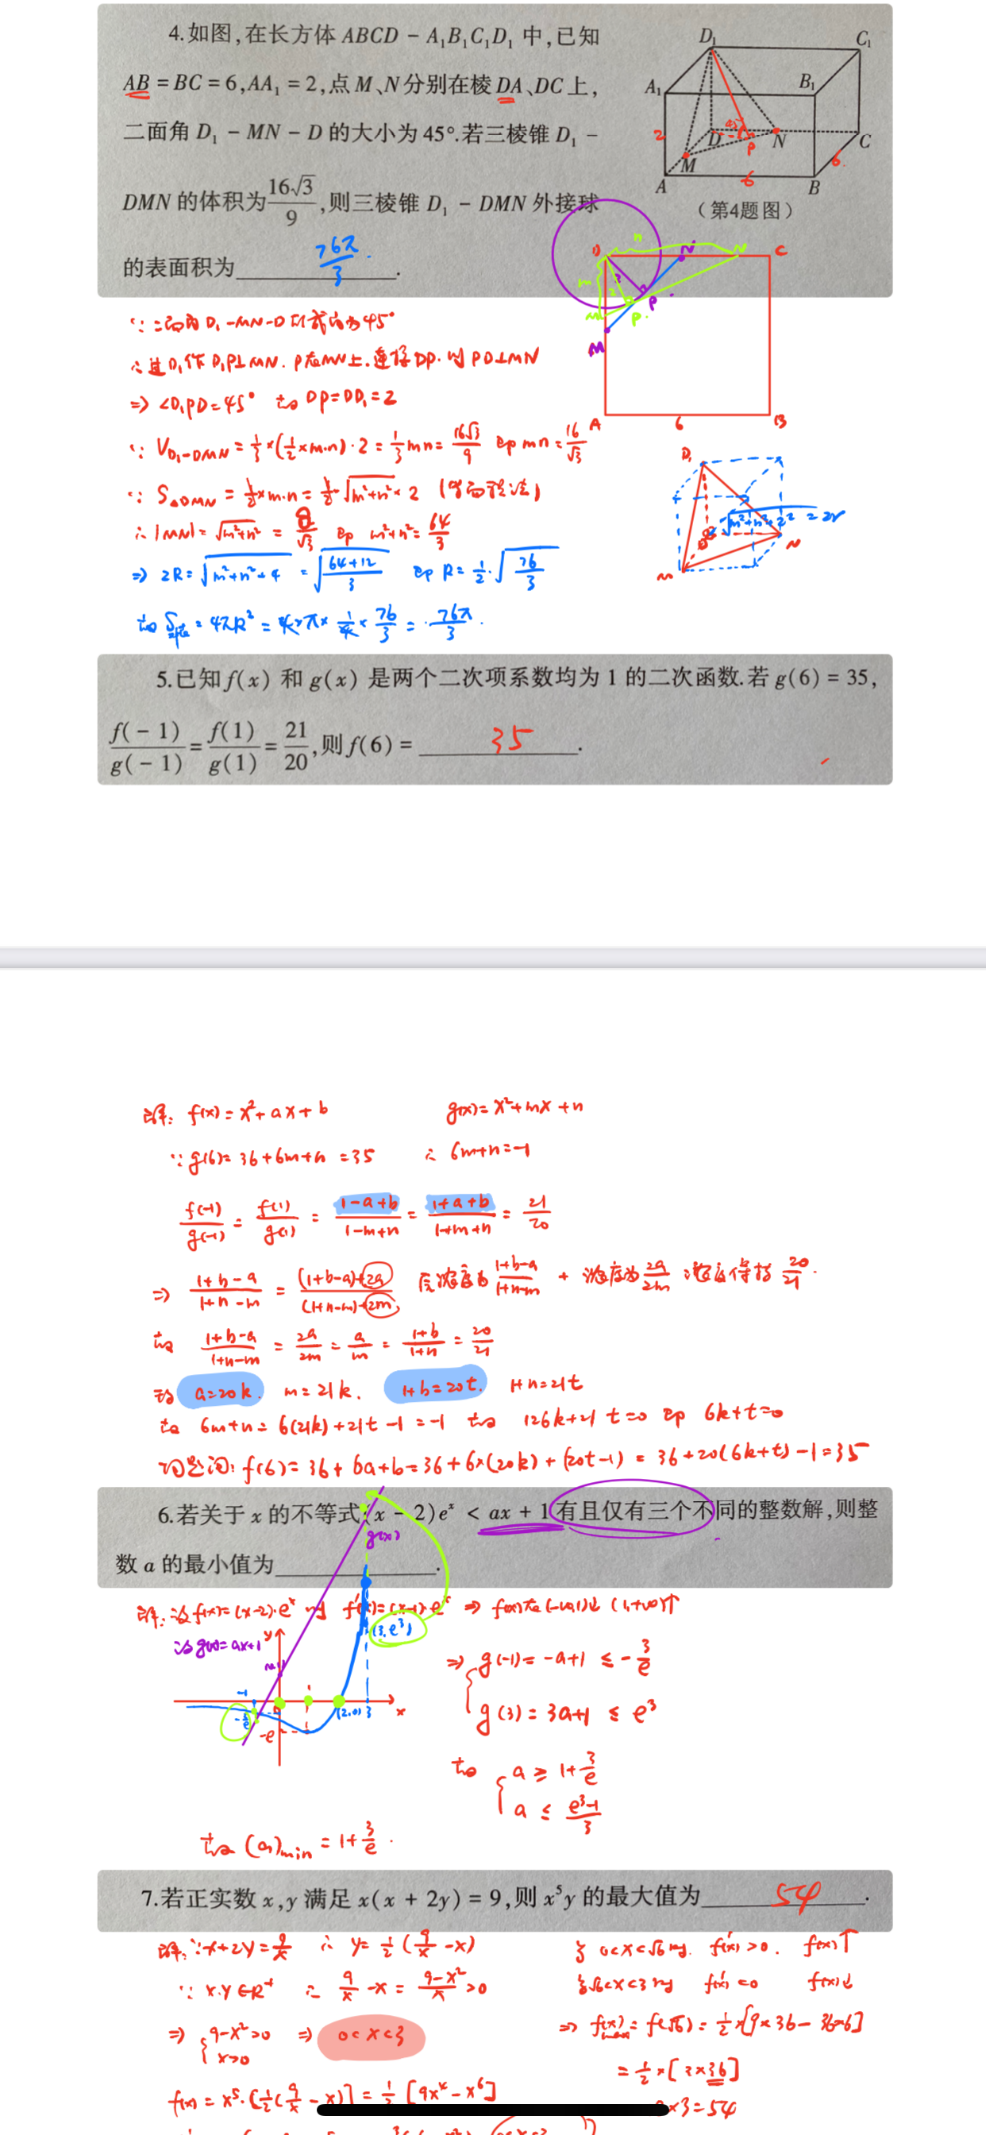 4.如图,在长方体 ABCD - A₁B₁C₁D₁ 中,已知
AB = BC = 6,AA₁ = 2,点 M、N 分别在棱 DA、DC 上,
二面角 D₁ - MN - D 的大小为 45°.若三棱锥 D₁ -
DMN 的体积为 16√3/9 ,则三棱锥 D₁ - DMN 外接球
的表面积为 76π/3 .
D₁ C₁ A₁ B₁ D P N C M A B 2 6 6
(第4题图)
D n N' N C
m 2 2 P P
M
M
A 6 B
∵ 二面角 D₁-MN-D 的大小为45°
∴ 过D₁作D₁P⊥MN. P在MN上. 连接DP. 则PD⊥MN
⇒ ∠D₁PD=45° 故 DP=DD₁=2
∵ V_{D₁-DMN} = 1/3×(1/2×m·n)·2 = 1/3 mn = 16√3/9 即 mn = 16/√3
∵ S_{△DMN} = 1/2×m·n = 1/2·√(m²+n²)×2 (等面积法)
∴ |MN| = √(m²+n²) = 8/√3 即 m²+n² = 64/3
D₁ M N √(m²+n²+2²) = 2r
⇒ 2R = √(m²+n²+4) = √((64+12)/3) 即 R = 1/2·√(76/3)
故 S = 4πR² = 4×π×1/4×76/3 = 76π/3.
5.已知 f(x) 和 g(x) 是两个二次项系数均为 1 的二次函数.若 g(6) = 35,
f(-1)/g(-1) = f(1)/g(1) = 21/20 ,则 f(6) = 35 .
解: f(x)=x²+ax+b g(x)=x²+mx+n
∵ g(6)=36+6m+n=35 ∴ 6m+n=-1
f(-1)/g(-1) = f(1)/g(1) = (1-a+b)/(1-m+n) = (1+a+b)/(1+m+n) = 21/20
⇒ (1+b-a)/(1+n-m) = ((1+b-a)+2a)/((1+n-m)+2m) 浓度为 (1+b-a)/(1+n-m) + 浓度为 2a/2m 浓度保持 20/21.
故 (1+b-a)/(1+n-m) = 2a/2m = a/m = (1+b)/(1+n) = 20/21
a=20k. m=21k. 1+b=20t. 1+n=21t
故 6m+n=6(21k)+21t-1=-1 故 126k+21t=0 即 6k+t=0
f(6)=36+6a+b=36+6×(20k)+(20t-1)=36+20(6k+t)-1=35
6.若关于 x 的不等式 (x - 2)eˣ < ax + 1 有且仅有三个不同的整数解,则整
数 a 的最小值为 .
g(x)
解: 设f(x)=(x-2)·eˣ 则 f'(x)=(x-1)·eˣ ⇒ f(x)在(-∞,1)↓ (1,+∞)↑
设g(x)=ax+1 y (3,e³)
-1 -3/e -e (2,0) 3 x
⇒ g(-1)=-a+1 ≤ -3/e
g(3)=3a+1 ≤ e³
故 a ≥ 1+3/e
a ≤ (e³-1)/3
故 (a)min = 1+3/e.
7.若正实数 x,y 满足 x(x + 2y) = 9,则 x⁵y 的最大值为 54 .
解: ∵ x+2y=9/x ∴ y=1/2(9/x-x)
∵ x.y∈R⁺ ∴ 9/x-x=(9-x²)/x>0
⇒ 9-x²>0 x>0 ⇒ 0<x<3
f(x)=x⁵·[1/2(9/x-x)]=1/2[9x⁴-x⁶]
当0<x<√6时. f'(x)>0. f(x)↑
当√6<x<3时 f'(x)<0 f(x)↓
⇒ f(x)max=f(√6)=1/2×[9×36-36×6]
=1/2×[3×36]
×3=54